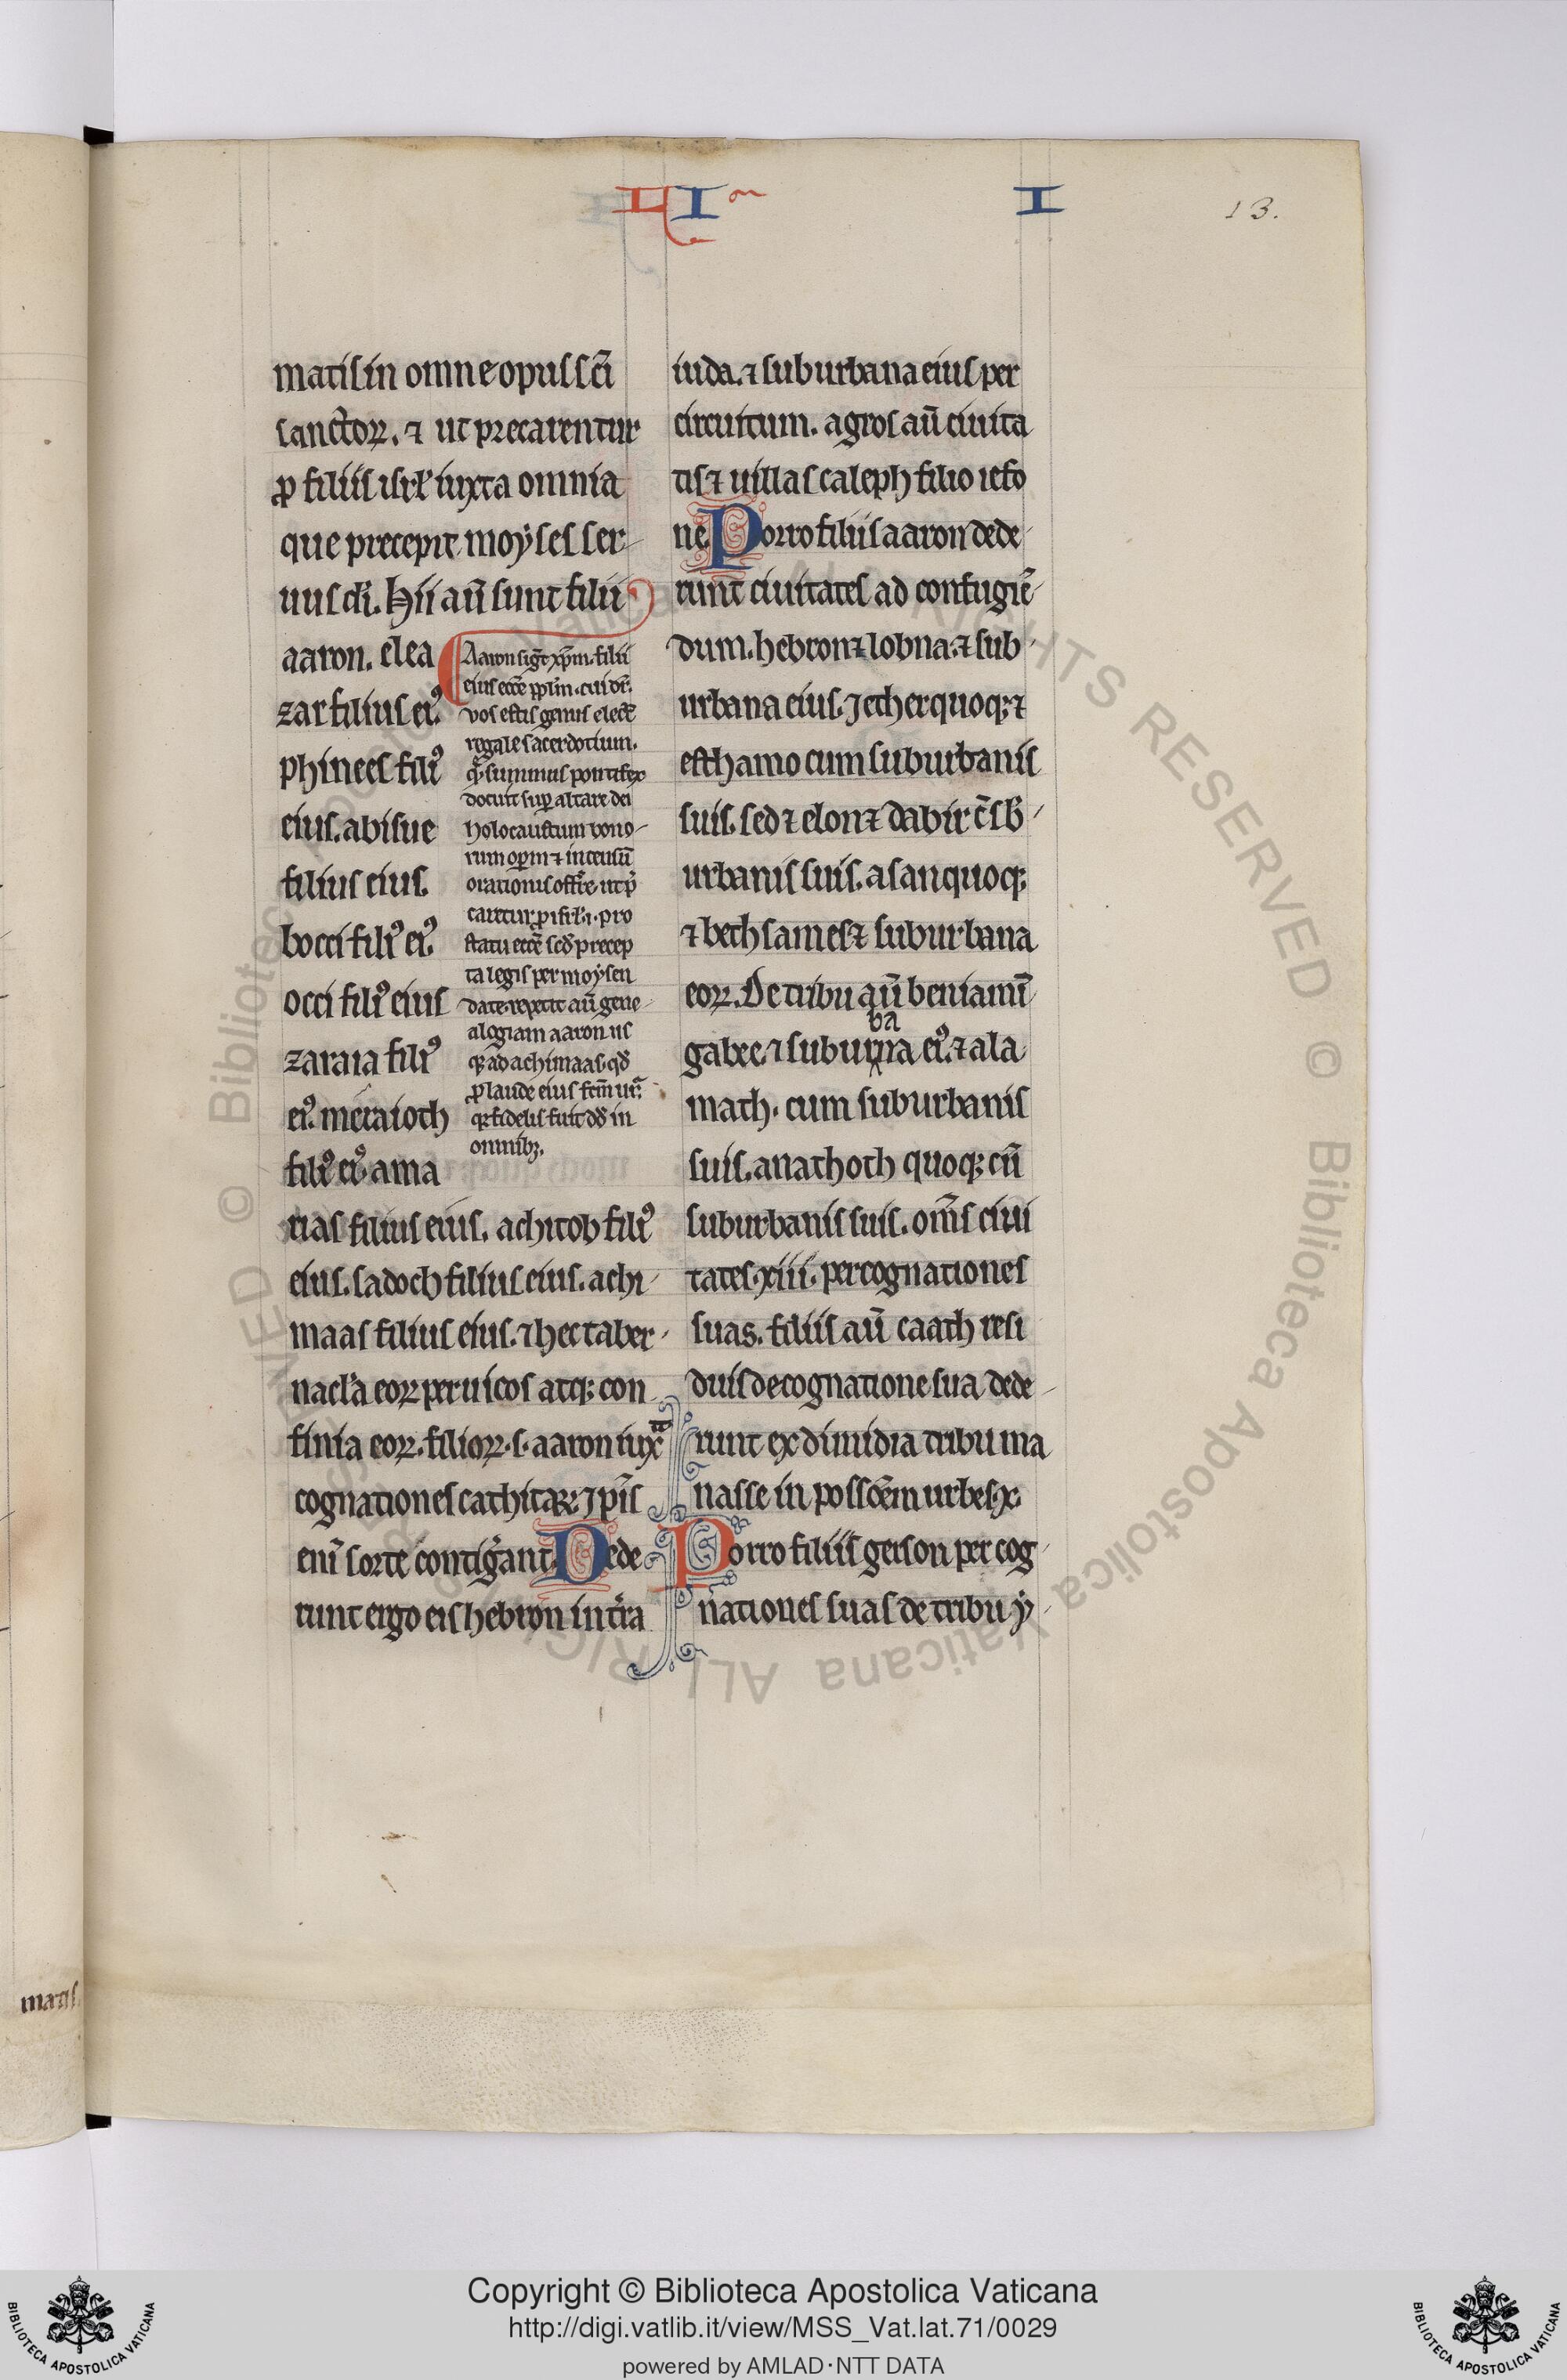 LI͂ I
13.
matis in omne opus sc̄i
sanctoꝝ. ⁊ ut precarentur
ꝓ filiis isrl̓ iuxta omnia
que precepit moyses ser
uus di̓. hii aū sunt filii
aaron. elea
zar filius eiꝰ.
phinees filiꝰ
eius. abisue
filius eius.
bocci filiꝰ eiꝰ.
occi filiꝰ eius
zaraia filiꝰ
eiꝰ. meraioth
filiꝰ eiꝰ. ama
rias filius eius. achitob filiꝰ
eius. sadoch filius eius. achi
maas filius eius. ⁊ hec taber
nacl̓a eoꝝ per uicos atqꝫ con
finia eoꝝ. filioꝝ .s. aaron iuxͣ
cognationes cathitaꝝ. ip̄is
eni̅ sorte contig̓ant. Dede
runt ergo eis hebron in t̓ra
Aaron sig̅t xp̅m. filii
eius ecc̅e pp̅l̓m. cui dr̅.
vos estis genus elect̅
regale sacerdotium.
qͣ summus pontifex
docuit suꝑ altare dei
holocaustum bono
rum oꝑum ⁊ incensū
orationis offr̅e. ut p̓
caretur ꝓ ifil̓i. pro
statu ecc̅e scd̅ precep
ta legis per moysen
date. repetit aū gene
alogiam aaron us
qꝫ ad achimaas. qd̅
ꝓ laude eius fc̅m ur̅.
qꝛ fidelis fuit dd̅ in
omnibꝫ.
iuda. ⁊ suburbana eius per
circuitum. agros aū ciuita
tis ⁊ uillas caleph filio iefo
ne. Porro filiis aaron dede
runt ciuitates ad confugie̅
dum. hebron ⁊ lobna. ⁊ sub
urbana eius. Jether quoqꝫ ⁊
esthamo cum suburbanis
suis. sed ⁊ elon ⁊ dabir c̅ sb̓
urbanis suis. asan quoqꝫ
⁊ bethsames ⁊ suburbana
eoꝝ. De tribu aū beniami̅
ba
gabee ⁊ suburna eiꝰ. ⁊ ala
math. cum suburbanis
suis. anathoth quoqꝫ cū
suburbanis suis. om̅s ciui
tates .xiii. per cognationes
suas. filiis aū caath resi
duis de cognatione sua dede
runt ex dimidia tribu ma
nasse in possoe̅m urbes .x.
Porro filiis gerson per cog
nationes suas de tribu y
matis
Copyright © Biblioteca Apostolica Vaticana
http://digi.vatlib.it/view/MSS_Vat.lat.71/0029
powered by AMLAD·NTT DATA
BIBLIOTECA APOSTOLICA VATICANA
BIBLIOTECA APOSTOLICA VATICANA